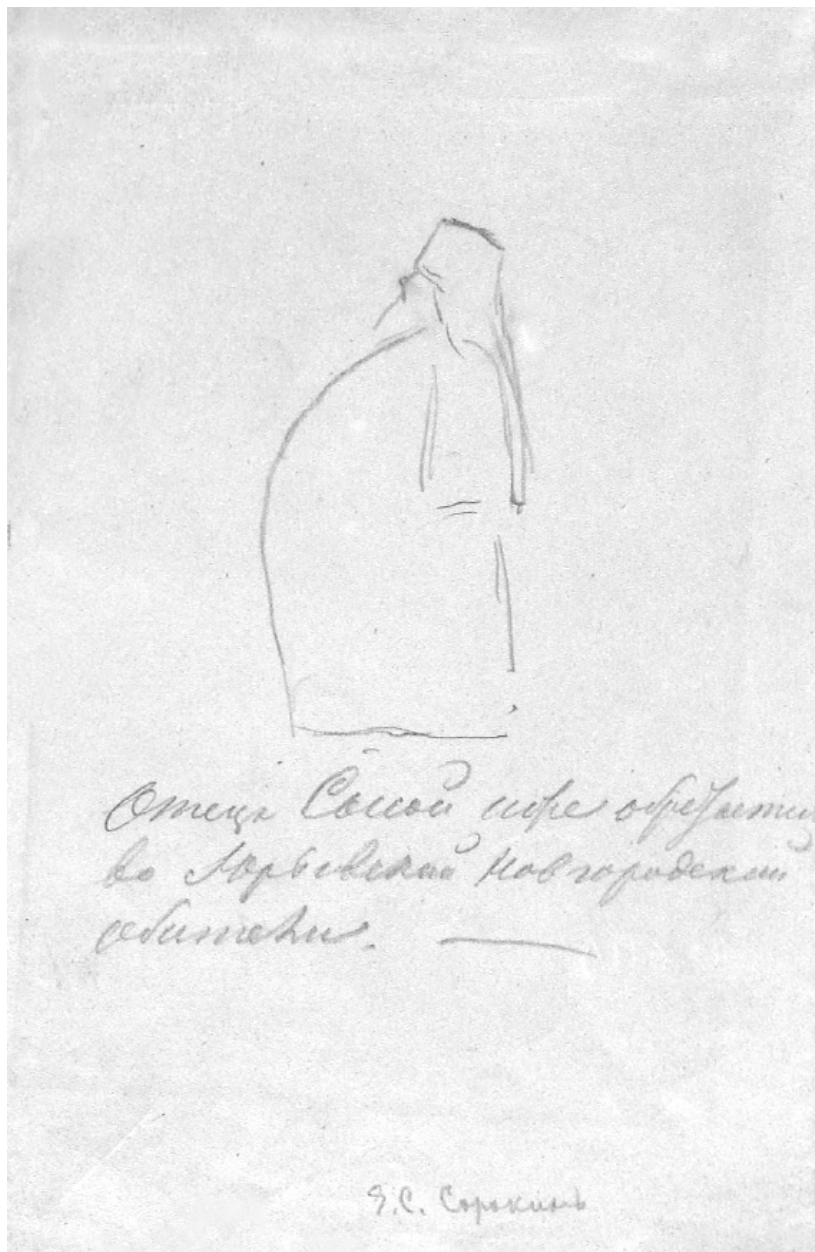 Отецъ Сысой иже обретается
во Юрьевской Новгородской
обители.
Е.С. Сорокинъ